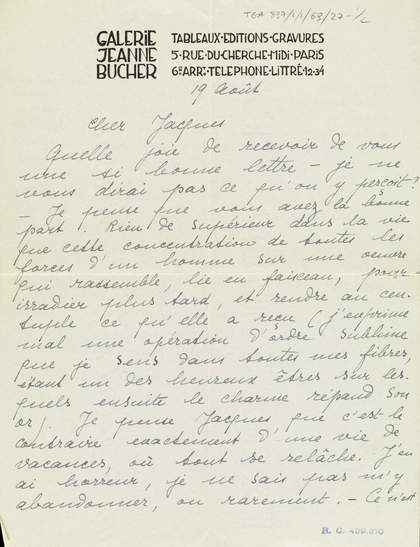 TGA 987/1/1/63/27-1/2
GALERIE TABLEAUX·EDITIONS·GRAVURES
JEANNE 5·RUE·DU·CHERCHE·MIDI·PARIS
BUCHER 6E·ARRT·TELEPHONE·LITTRÉ·12·34
19 Août
Cher Jacques
Quelle joie de recevoir de vous
une si bonne lettre – je ne
vous dirai pas ce qu'on y perçoit?
– Je pense que vous avez la bonne
part. Rien de supérieur dans la vie
que cette concentration de toutes les
forces d'un homme sur une oeuvre
qui rassemble, lie en faisceau, pour
irradier plus tard, et rendre au cen-
tuple ce qu'elle a reçu (j'exprime
mal une opération d'ordre sublime
que je sens dans toutes mes fibres,
étant un des heureux êtres sur les-
quels ensuite le charme répand son
or). Je pense Jacques que c'est le
contraire exactement d'une vie de
vacances, où tout se relâche. J'en
ai horreur, je ne sais pas m'y
abandonner, ou rarement. – Ce n'est
R. C. 489.810